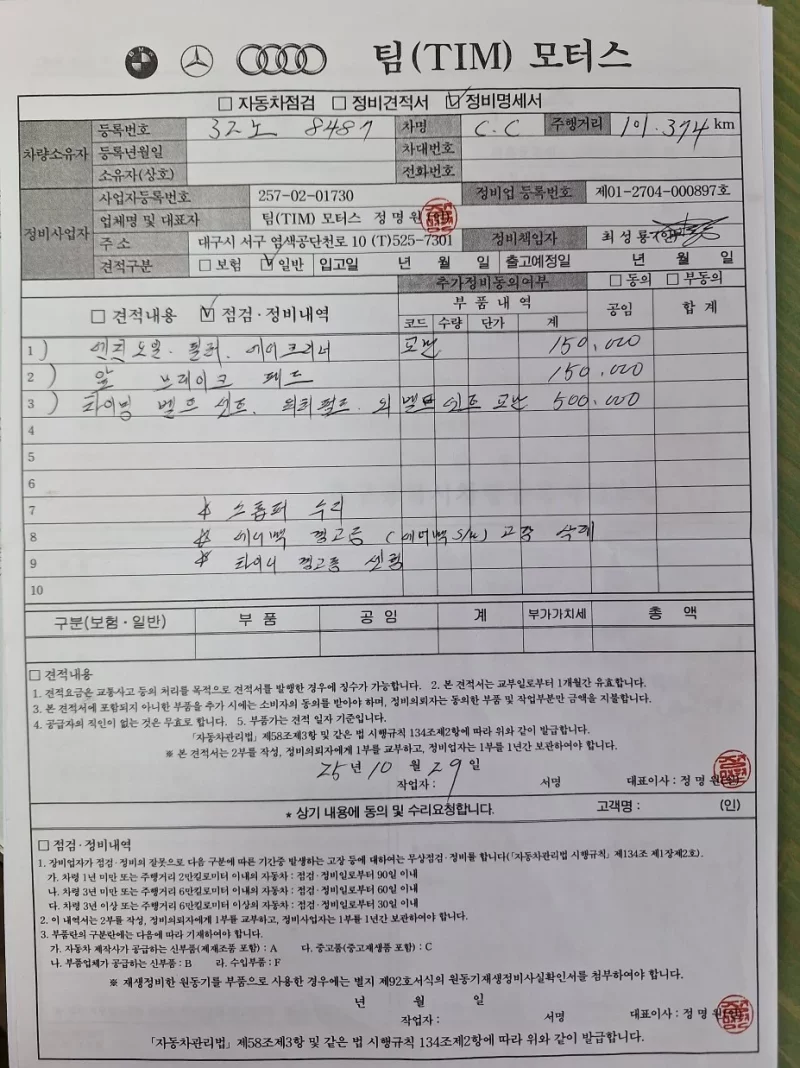 팀(TIM) 모터스
□ 자동차점검 □ 정비견적서 ☑ 정비명세서
차량소유자 등록번호 32노 8487 차명 C.C 주행거리 101.374 km
등록년월일 차대번호
소유자(상호) 전화번호
정비사업자 사업자등록번호 257-02-01730 정비업 등록번호 제01-2704-000897호
업체명 및 대표자 팀(TIM) 모터스 정명원 (인)
주소 대구시 서구 염색공단천로 10 (T)525-7301 정비책임자 최성룡
견적구분 □ 보험 ☑ 일반 입고일 년 월 일 출고예정일 년 월 일
추가정비동의여부 □ 동의 □ 부동의
□ 견적내용 ☑ 점검·정비내역 부품내역 공임 합계
코드 수량 단가 계
1) 엔진오일. 필터. 에어크리너 교환 150.000
2) 앞 브레이크 패드 150.000
3) 타이밍 벨트 셋트. 워터펌프. 외 벨트 셋트 교환 500.000
4
5
6
7 * 스톱퍼 수리
8 * 에어백 경고등 (에어백 S/W) 고장 삭제
9 * 타이어 경고등 셋팅
10
구분(보험·일반) 부품 공임 계 부가가치세 총액
□ 견적내용
1. 견적요금은 교통사고 등의 처리를 목적으로 견적서를 발행한 경우에 징수가 가능합니다. 2. 본 견적서는 교부일로부터 1개월간 유효합니다.
3. 본 견적서에 포함되지 아니한 부품을 추가 시에는 소비자의 동의를 받아야 하며, 정비의뢰자는 동의한 부품 및 작업부분만 금액을 지불합니다.
4. 공급자의 직인이 없는 것은 무효로 합니다. 5. 부품가는 견적 일자 기준입니다.
「자동차관리법」 제58조제3항 및 같은 법 시행규칙 134조제2항에 따라 위와 같이 발급합니다.
※ 본 견적서는 2부를 작성, 정비의뢰자에게 1부를 교부하고, 정비업자는 1부를 1년간 보관하여야 합니다.
25년 10월 29일
작업자 : 서명 대표이사 : 정명원(인)
* 상기 내용에 동의 및 수리요청합니다. 고객명 : (인)
□ 점검·정비내역
1. 장비업자가 점검·정비의 잘못으로 다음 구분에 따른 기간중 발생하는 고장 등에 대하여는 무상점검·정비를 합니다(「자동차관리법 시행규칙」 제134조 제1장제2호).
가. 차령 1년 미만 또는 주행거리 2만킬로미터 이내의 자동차 : 점검·정비일로부터 90일 이내
나. 차령 3년 미만 또는 주행거리 6만킬로미터 이내의 자동차 : 점검·정비일로부터 60일 이내
다. 차령 3년 이상 또는 주행거리 6만킬로미터 이상의 자동차 : 점검·정비일로부터 30일 이내
2. 이 내역서는 2부를 작성, 정비의뢰자에게 1부를 교부하고, 정비사업자는 1부를 1년간 보관하여야 합니다.
3. 부품란의 구분란에는 다음에 따라 기재하여야 합니다.
가. 자동차 제작사가 공급하는 신부품(제재조품 포함) : A 다. 중고품(중고재생품 포함) : C
나. 부품업체가 공급하는 신부품 : B 라. 수입부품 : F
※ 재생정비한 원동기를 부품으로 사용한 경우에는 별지 제92호서식의 원동기재생정비사실확인서를 첨부하여야 합니다.
년 월 일
작업자 : 서명 대표이사 : 정명원(인)
「자동차관리법」 제58조제3항 및 같은 법 시행규칙 134조제2항에 따라 위와 같이 발급합니다.